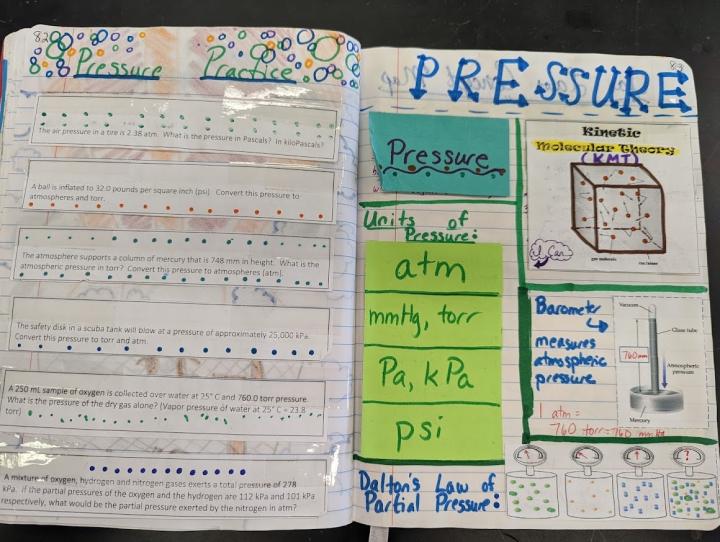 82
Pressure Practice
The air pressure in a tire is 2.38 atm. What is the pressure in Pascals? In kiloPascals?
A ball is inflated to 32.0 pounds per square inch (psi). Convert this pressure to
atmospheres and torr.
The atmosphere supports a column of mercury that is 748 mm in height. What is the
atmospheric pressure in torr? Convert this pressure to atmospheres (atm).
The safety disk in a scuba tank will blow at a pressure of approximately 25,000 kPa.
Convert this pressure to torr and atm.
A 250 mL sample of oxygen is collected over water at 25° C and 760.0 torr pressure.
What is the pressure of the dry gas alone? (Vapor pressure of water at 25° C = 23.8
torr)
A mixture of oxygen, hydrogen and nitrogen gases exerts a total pressure of 278
kPa. If the partial pressures of the oxygen and the hydrogen are 112 kPa and 101 kPa
respectively, what would be the partial pressure exerted by the nitrogen in atm?
83
PRESSURE
Pressure
Units of
Pressure:
atm
mmHg, torr
Pa, kPa
psi
Dalton's Law of
Partial Pressure:
Kinetic
Molecular Theory
(KMT)
I Can
gas molecule
Barometer
measures
atmospheric
pressure
1 atm =
760 torr = 760 mmHg
Vacuum
Glass tube
760mm
Atmospheric
pressure
Mercury
?